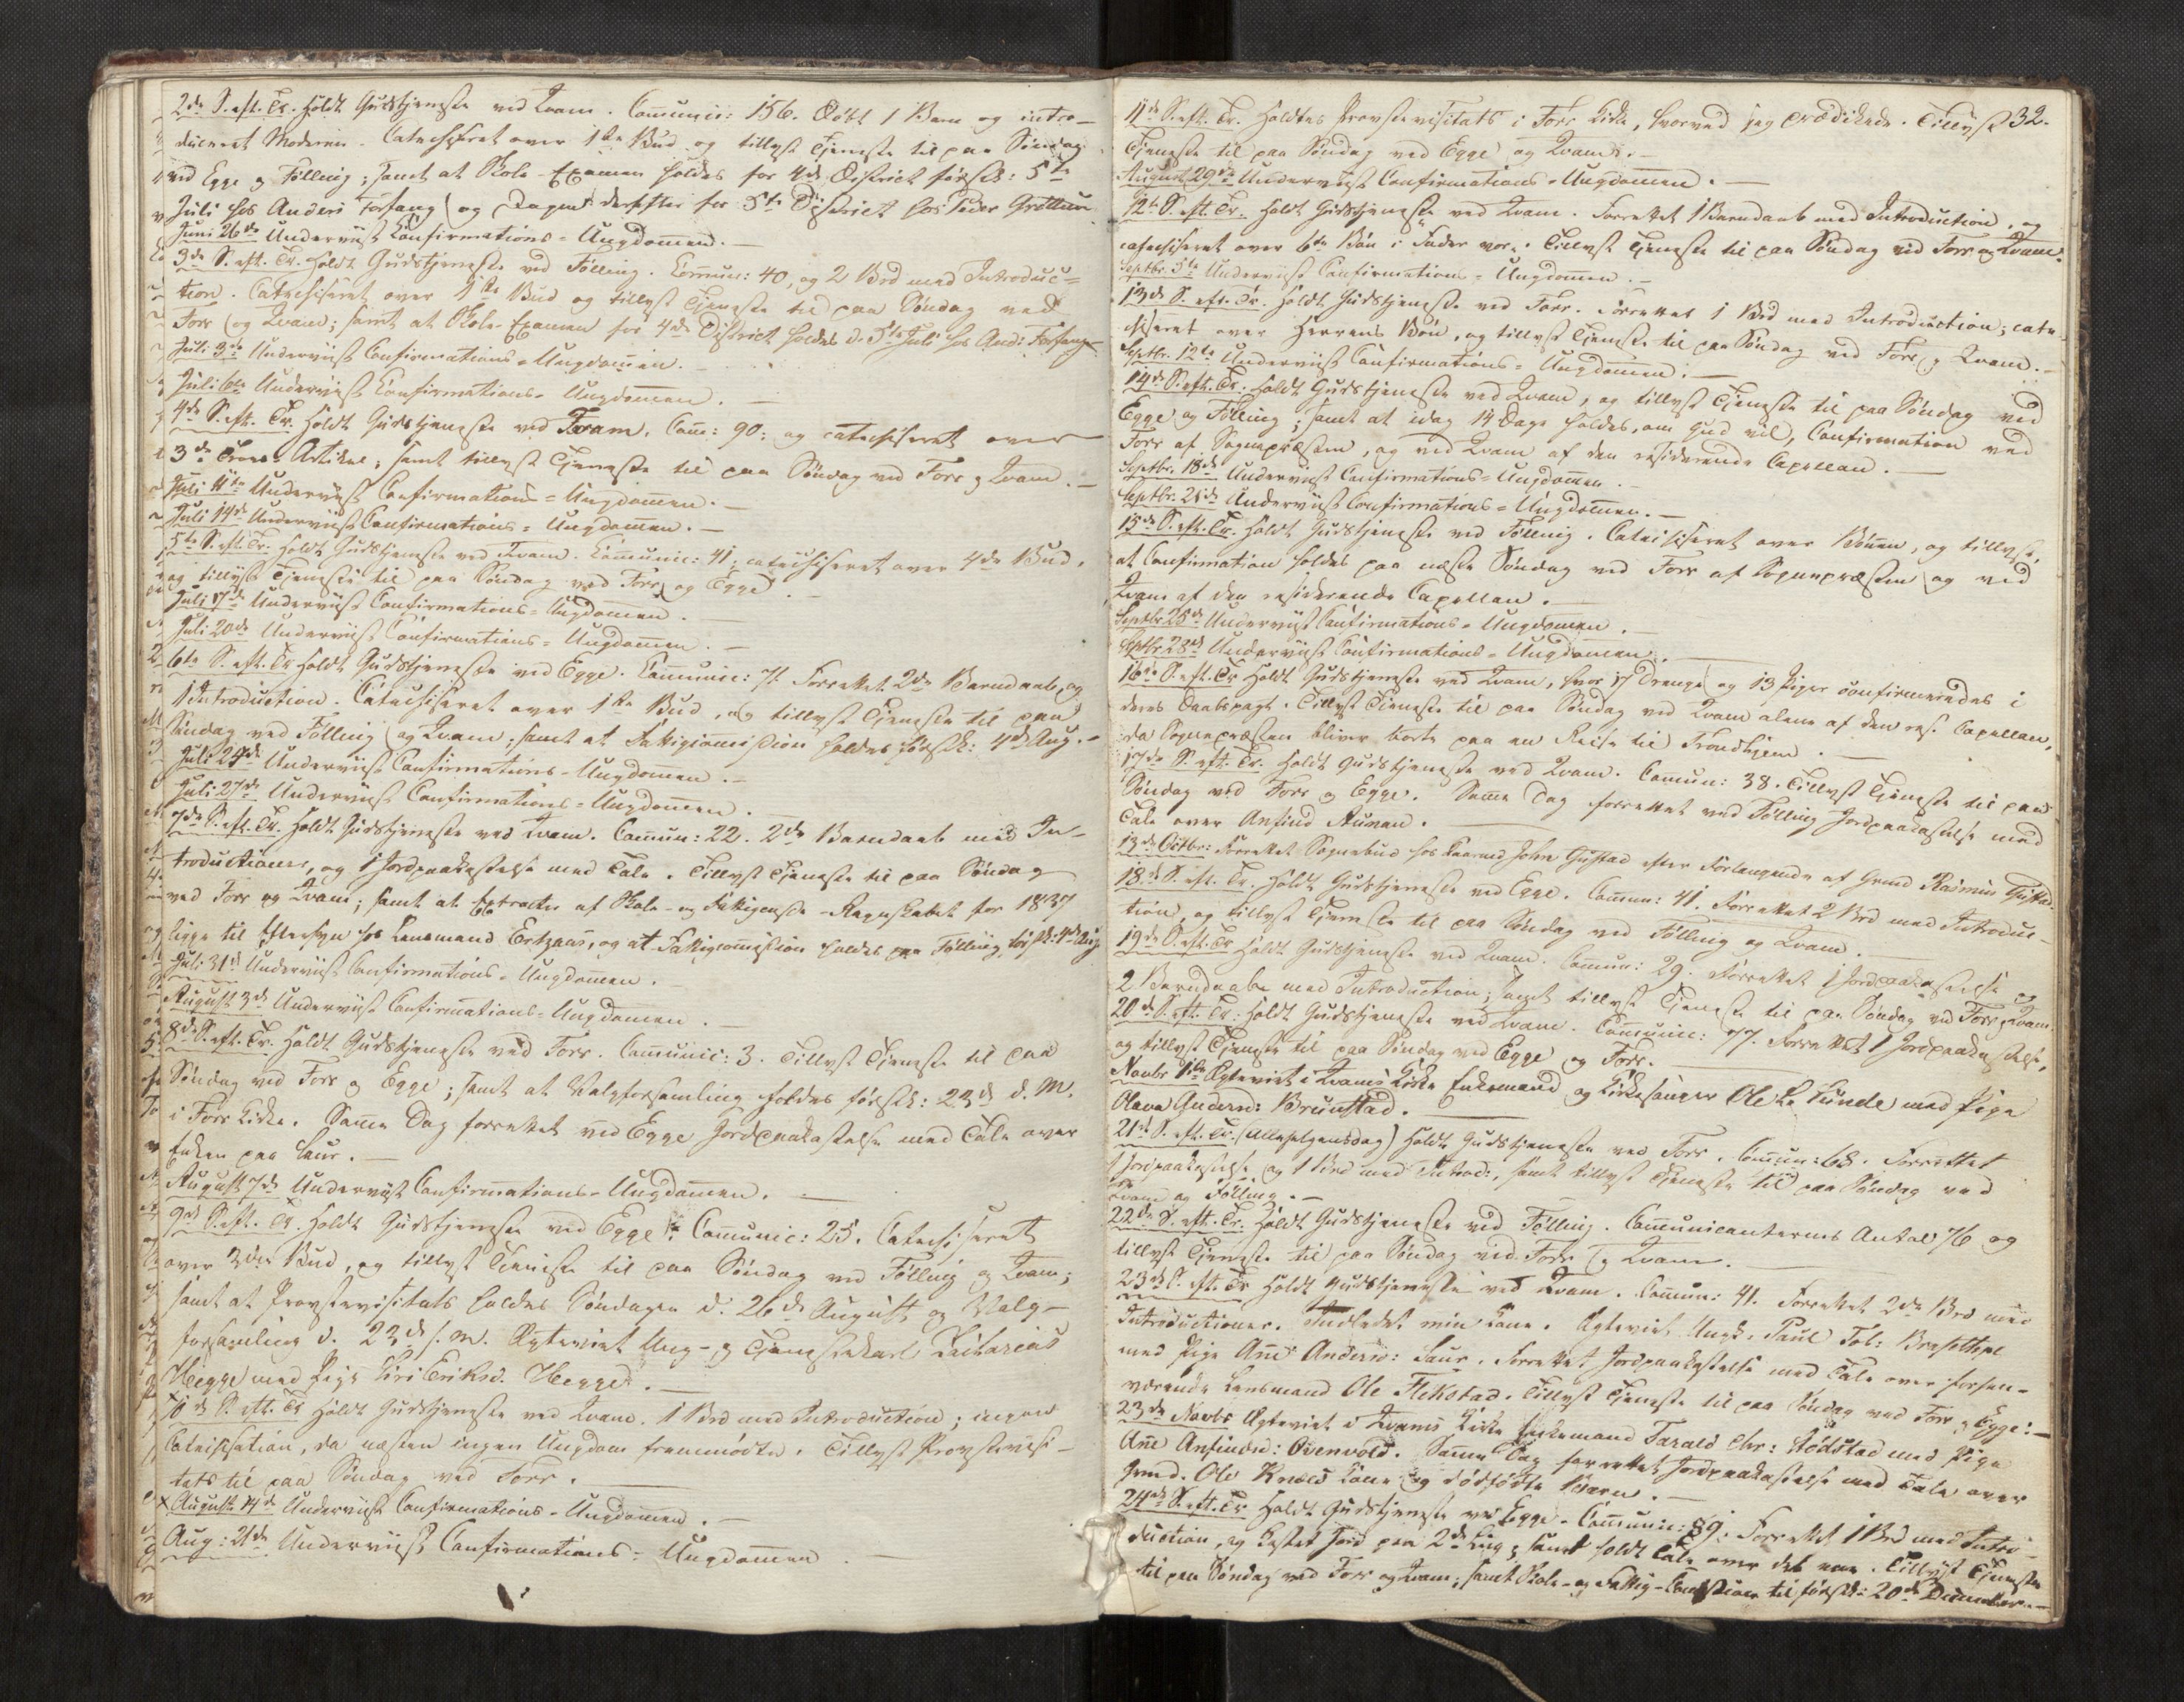 2de S. eft. Tr. Holdt Gudstjeneste ved Qvam. Com̅unic: 156. Døbt 1 Barn og intro-
duceret Moderen. Catechiseret over 1ste Bud og tillyst Tjeneste til paa Søndag
ved Egge og Følling; samt at Skole-Examen holdes for 4de District førstk: 5te
Juli hos Anders Forfang og Dagen derefter for 5te District hos Peder Grøttum
Juni 26de Underviist Confirmations-Ungdom̅en. —
3de S. eft. Tr. Holdt Gudstjeneste ved Følling. Com̅un: 40, og 2 Brd med Introduc-
tion. Catechiseret over 1ste Bud og tillyst Tjeneste til paa Søndag ved
Forr og Qvam; samt at Skole-Examen for 4de District holdes d. 5te Juli hos And: Forfang
Juli 3de Underviist Confirmations-Ungdom̅en.
Juli 6te Underviist Confirmations-Ungdom̅en. —
4de S. eft. Tr. Holdt Gudstjeneste ved Qvam. Com̅: 90; og catechiseret over
3de Troes-Artikel; samt tillyst Tjeneste til paa Søndag ved Forr og Qvam. —
Juli 11te Underviist Confirmations-Ungdom̅en. —
Juli 14de Underviist Confirmations-Ungdom̅en. —
5te S. eft. Tr. Holdt Gudstjeneste ved Qvam. Com̅unic: 41; catechiseret over 4de Bud,
og tillyst Tjeneste til paa Søndag ved Forr og Egge. —
Juli 17de Underviist Confirmations-Ungdom̅en.
Juli 20de Underviist Confirmations-Ungdom̅en. —
6te S. eft. Tr. Holdt Gudstjeneste ved Egge. Com̅unic: 71. Forrettet 2de Barnedaab, og
1 Introduction. Catechiseret over 1ste Bud, og tillyst Tjeneste til paa
Søndag ved Følling og Qvam; samt at Fattigcom̅ission holdes førstk: 4de Aug. —
Juli 24de Underviist Confirmations-Ungdom̅en. —
Juli 27de Underviist Confirmations-Ungdom̅en.
7de S. eft. Tr. Holdt Gudstjeneste ved Qvam. Com̅un: 22. 2de Barnedaab med In-
troductioner, og 1 Jordpaakastelse med Tale. Tillyst Tjeneste til paa Søndag
ved Forr og Qvam; samt at Extracter af Skole- og Fattigvæsens-Regnskabet for 1837
ligge til Eftersyn hos Lensmand Ertzaas, og at Fattigcom̅ission holdes paa Følling førstk: 4de Aug.
Juli 31te Underviist Confirmations-Ungdom̅en.
August 3de Underviist Confirmations-Ungdom̅en. —
8de S. eft. Tr. Holdt Gudstjeneste ved Forr. Com̅unic: 3. Tillyst Tjeneste til paa
Søndag ved Forr og Egge; samt at Valgforsamling holdes førstk: 23de d. M.
i Forr Kirke. Sam̅e Dag forrettet ved Egge Jordpaakastelse med Tale over
Enken paa Saur. —
August 7de Underviist Confirmations-Ungdom̅en. —
9de S. eft. Tr. Holdt Gudstjeneste ved Egge. Com̅unic: 25. Catechiseret
over 3die Bud, og tillyst Tjeneste til paa Søndag ved Følling og Qvam;
samt at Provstevisitats holdes Søndagen d. 26de August og Valg-
forsamling d. 23de s. M. Ægteviet Ung- og Tjenestekarl Zacharias
Hegge med Pige Siri Eriksd. Hegge. —
10de S. eft. Tr. Holdt Gudstjeneste ved Qvam. 1 Brd med Introduction; ingen
Catechisation, da næsten ingen Ungdom fremmødte. Tillyst Provstevisi-
tats til paa Søndag ved Forr. —
August 14de Underviist Confirmations-Ungdom̅en. —
Aug: 21de Underviist Confirmations-Ungdom̅en. —
32.
11te S. eft. Tr. Holdtes Provstevisitats i Forr Kirke, hvorved jeg prædikede. Tillyst
Tjeneste til paa Søndag ved Egge og Qvam. —
August 29de Underviist Confirmations-Ungdom̅en. —
12te S. eft. Tr. Holdt Gudstjeneste ved Qvam. Forrettet 1 Barnedaab med Introduction, og
catechiseret over 6te Bøn i Fader vor. Tillyst Tjeneste til paa Søndag ved Forr og Qvam.
Septbr. 5te Underviist Confirmations-Ungdom̅en. —
13de S. eft. Tr. Holdt Gudstjeneste ved Forr. Forrettet 1 Brd med Introduction; cate-
chiseret over Herrens Bøn, og tillyst Tjeneste til paa Søndag ved Forr og Qvam. —
Septbr. 12te Underviist Confirmations-Ungdom̅en. —
14de S. eft. Tr. Holdt Gudstjeneste ved Qvam, og tillyst Tjeneste til paa Søndag ved
Egge og Følling; samt at idag 14 Dage holdes, om Gud vil, Confirmation ved
Forr af Sognepræsten, og ved Qvam af den residerende Capellan. —
Septbr. 18de Underviist Confirmations-Ungdom̅en. —
Septbr. 21de Underviist Confirmations-Ungdom̅en. —
15de S. eft. Tr. Holdt Gudstjeneste ved Følling. Catechiseret over Bønnen, og tillyst,
at Confirmation holdes paa næste Søndag ved Forr af Sognepræsten og ved
Qvam af den residerende Capellan. —
Septbr. 25de Underviist Confirmations-Ungdom̅en. —
Septbr. 28de Underviist Confirmations-Ungdom̅en. —
16de S. eft. Tr. Holdt Gudstjeneste ved Qvam, hvor 17 Drenge og 13 Piger confirmeredes i
deres Daabspagt. Tillyst Tjeneste til paa Søndag ved Qvam alene af den res: Capellan,
da Sognepræsten bliver borte paa en Reise til Trondhjem. —
17de S. eft. Tr. Holdt Gudstjeneste ved Qvam. Com̅un: 38. Tillyst Tjeneste til paa
Søndag ved Forr og Egge. Sam̅e Dag forrettet ved Følling Jordpaakastelse med
Tale over Anfind Aunan. —
13de Octbr: Forrettet Sognebud hos Kaarmd John Gustad efter Forlangende af Grmd Rasmus Gustad.
18de S. eft. Tr. Holdt Gudstjeneste ved Egge. Com̅un: 41. Forrettet 2 Brd med Introduc-
tion, og tillyst Tjeneste til paa Søndag ved Følling og Qvam. —
19de S. eft. Tr. Holdt Gudstjeneste ved Qvam. Com̅un: 29. Forrettet 1 Jordpaakastelse og
2 Barnedaabe med Introduction; samt tillyst Tjeneste til paa Søndag ved Forr og Qvam.
20de S. eft. Tr. Holdt Gudstjeneste ved Qvam. Com̅unic: 77. Forrettet 1 Jordpaakastelse,
og tillyst Tjeneste til paa Søndag ved Egge og Forr. —
Novbr 1ste Ægteviet i Qvams Kirke Enkemand og Kirkesanger Ole La Lunde med Pige
Olava Andersd: Brunstad. —
21de S. eft. Tr. (Allehelgensdag) Holdt Gudstjeneste ved Forr. Com̅un: 68. Forrettet
1 Jordpaakastelse og 1 Brd med Introd:, samt tillyst Tjeneste til paa Søndag ved
Qvam og Følling. —
22de S. eft. Tr. Holdt Gudstjeneste ved Følling. Com̅unicanternes Antal 76 og
tillyst Tjeneste til paa Søndag ved Forr og Qvam. —
23de S. eft. Tr. Holdt Gudstjeneste ved Qvam. Com̅un: 41. Forrettet 2de Brd med
Introductioner. Indledet min Kone. Ægteviet Ungk. Paul Tol:
med Pige An̅e Andersd: Saur. Forrettet Jordpaakastelse med Tale over forhen-
værende Lensmand Ole Flekstad. Tillyst Tjeneste til paa Søndag ved Forr og Egge: —
23de Novbr Ægteviet i Qvams Kirke Enkemand Tarald Chr: Stødstad med Pige
An̅e Anfindsd: Østervold. Sam̅e Dag forrettet Jordpaakastelse med Tale over
Grmd. Ole Knælds Kone og dødfødte Barn. —
24de S. eft. Tr. Holdt Gudstjeneste ved Egge. Com̅unic: 89. Forrettet 1 Brd med Intro-
duction, og kastet Jord paa 2de Liig; samt holdt Tale over det ene. Tillyst Tjeneste
til paa Søndag ved Forr og Qvam; samt Skole- og Fattig-Com̅ission til førstk: 20de December. —